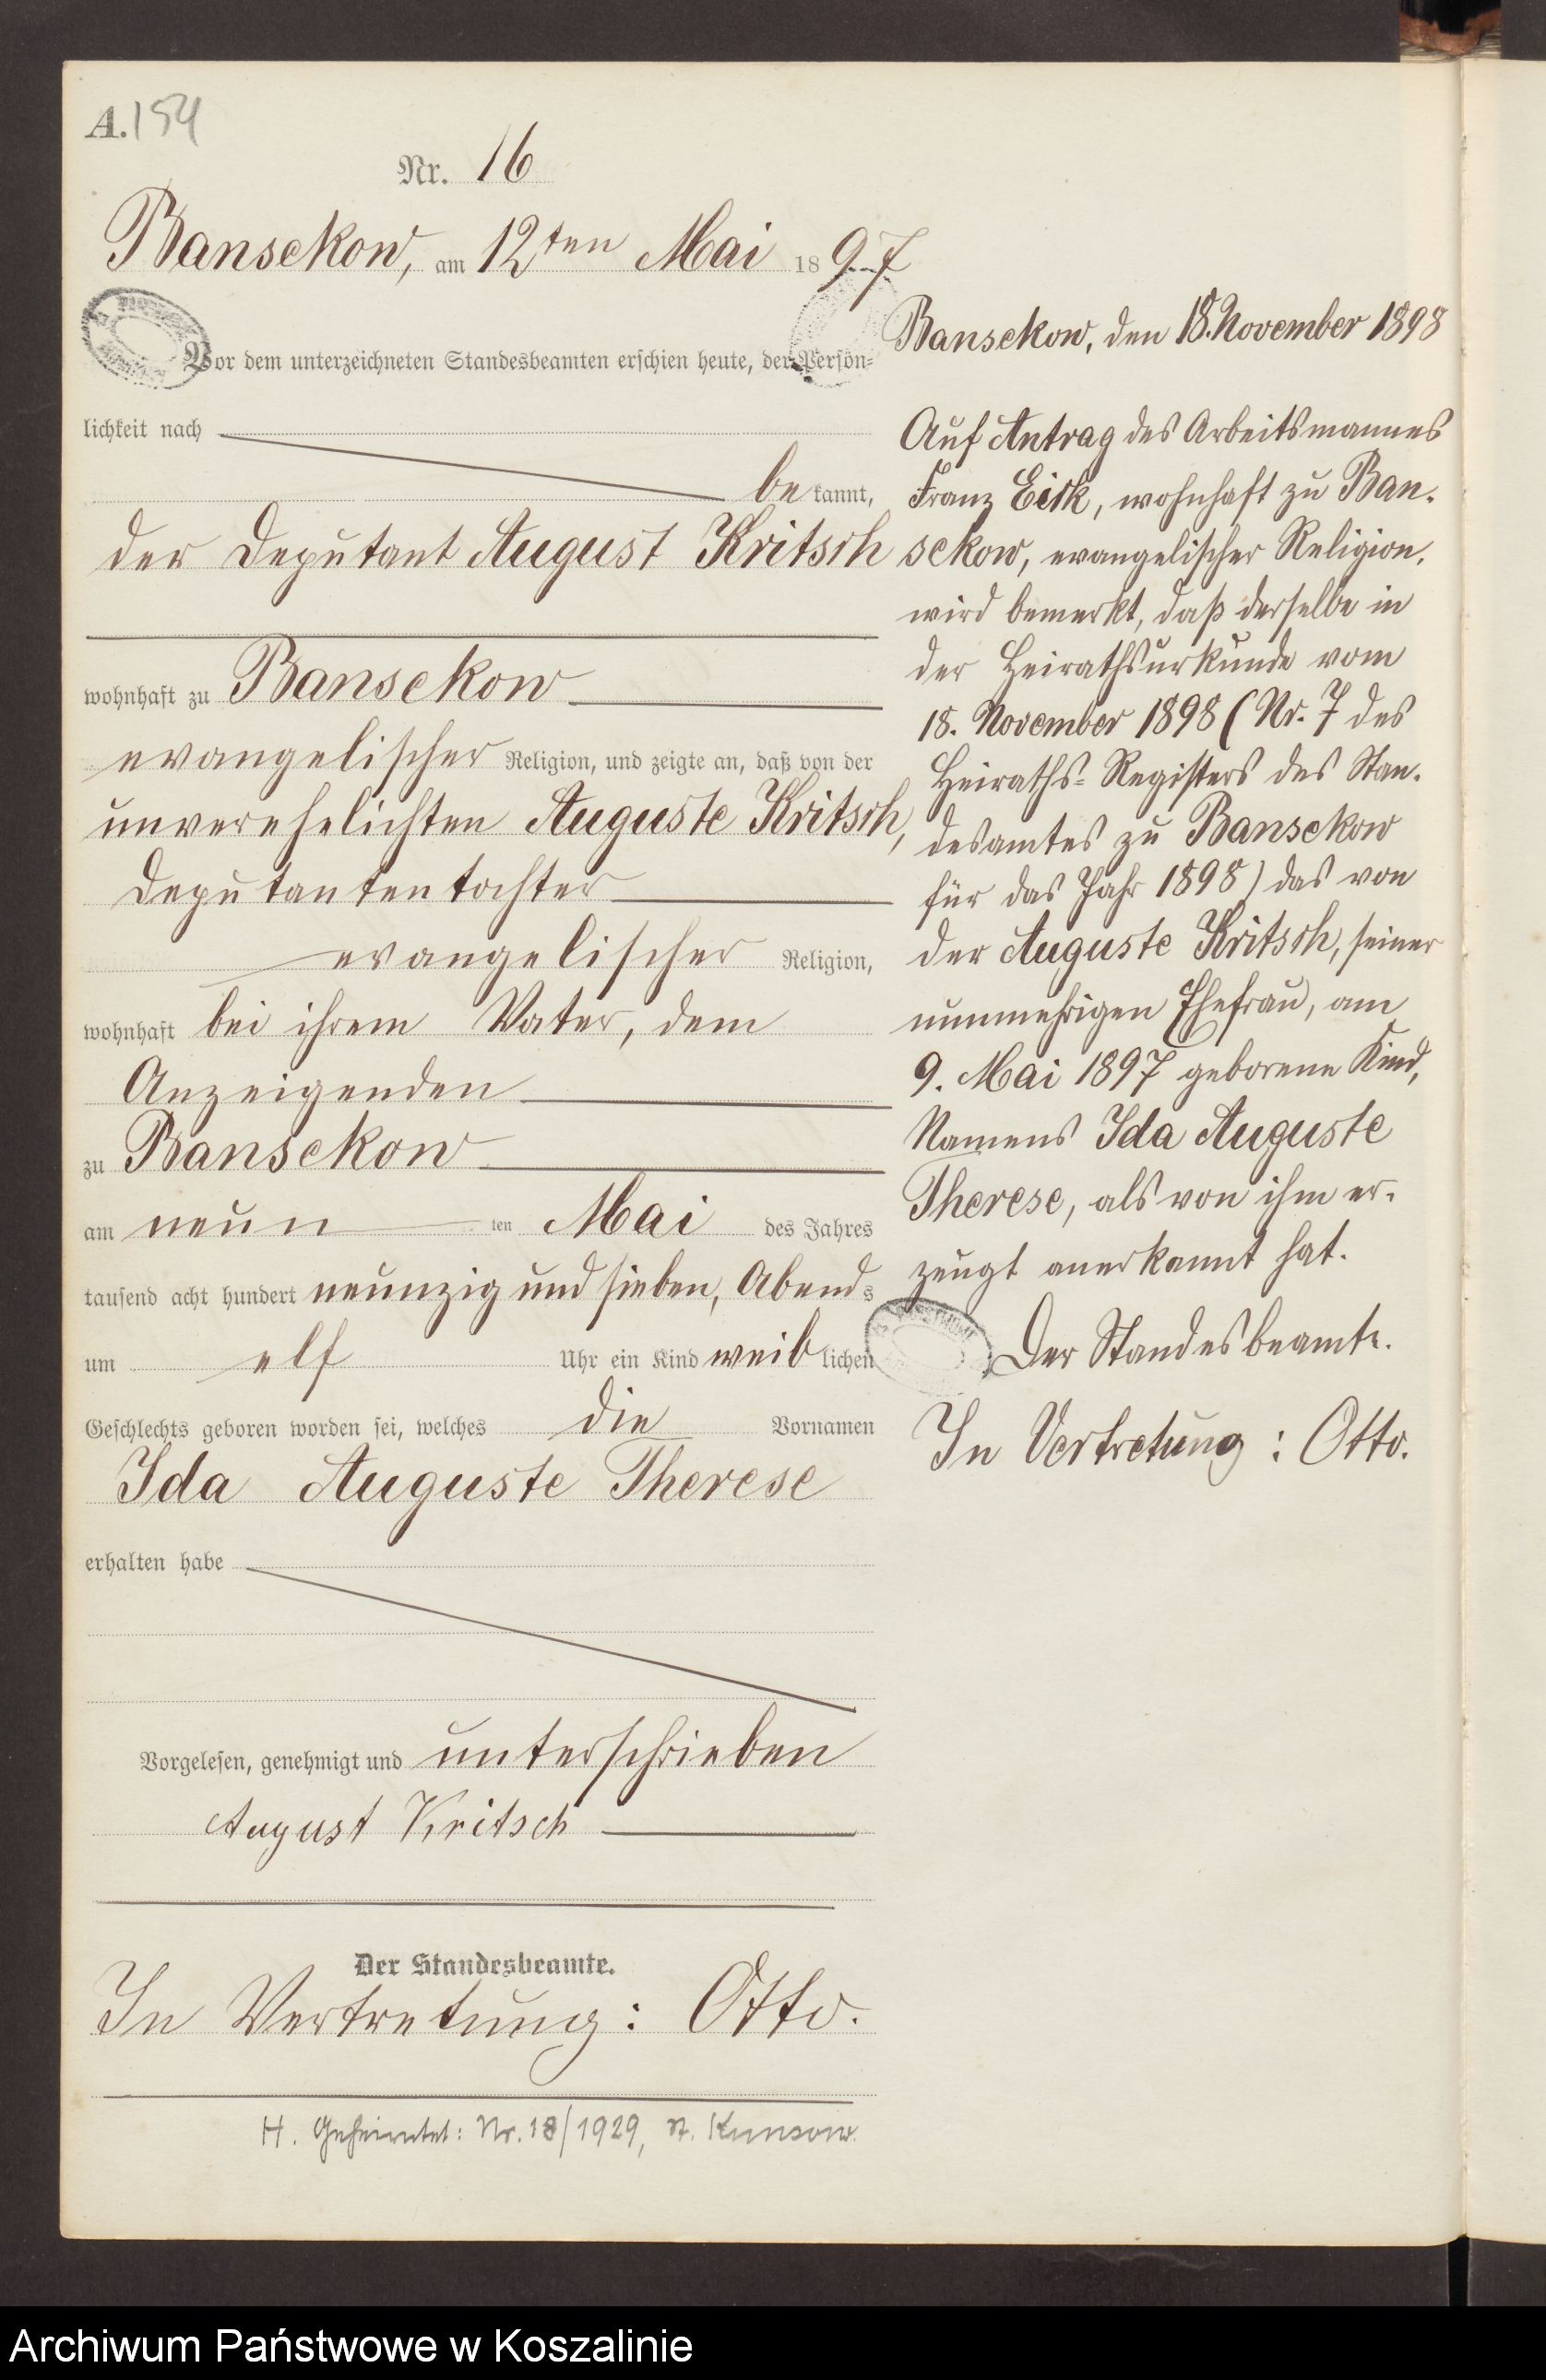 A. 154
Nr. 16
Bansekow, am 12ten Mai 1897
Vor dem unterzeichneten Standesbeamten erschien heute, der Persön-
lichkeit nach
bekannt,
der Deputant August Kritsch
wohnhaft zu Bansekow
evangelischer Religion, und zeigte an, daß von der
unverehelichten Auguste Kritsch,
Deputantentochter
evangelischer Religion,
wohnhaft bei ihrem Vater, dem
Anzeigenden
zu Bansekow
am neunten Mai des Jahres
tausend acht hundert neunzig und sieben, Abends
um elf Uhr ein Kind weiblichen
Geschlechts geboren worden sei, welches die Vornamen
Ida Auguste Therese
erhalten habe
Vorgelesen, genehmigt und unterschrieben
August Kritsch
Der Standesbeamte.
In Vertretung: Otto.
H. Geheiratet: Nr. 18/1929, St. Kunsow.
Bansekow, den 18. November 1898
Auf Antrag des Arbeitsmannes
Franz Eick, wohnhaft zu Ban-
sekow, evangelischer Religion,
wird bemerkt, daß derselbe in
der Heirathsurkunde vom
18. November 1898 (Nr. 7 des
Heiraths-Registers des Stan-
desamtes zu Bansekow
für das Jahr 1898) das von
der Auguste Kritsch, seiner
nunmehrigen Ehefrau, am
9. Mai 1897 geborene Kind,
Namens Ida Auguste
Therese, als von ihm er-
zeugt anerkannt hat.
Der Standesbeamte.
In Vertretung: Otto.
Archiwum Państwowe w Koszalinie